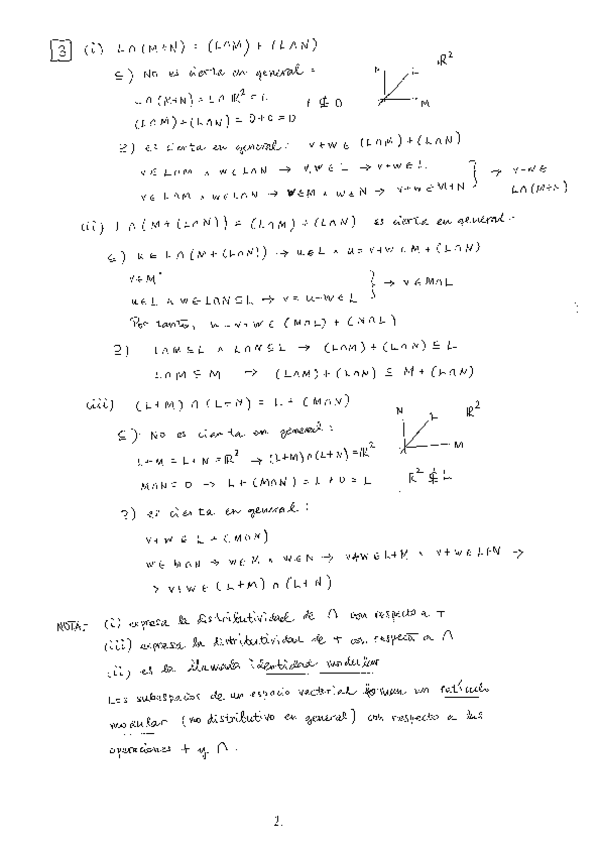 3 (i) L∩(M+N) = (L∩M) + (L∩N)
⊆) No es cierta en general:
L∩(M+N) = L∩ℝ² = L
(L∩M)+(L∩N) = 0+0 = 0
L ⊈ 0
N L ℝ²
M
⊇) es cierta en general: v+w ∈ (L∩M)+(L∩N)
v∈L∩M ∧ w∈L∩N → v,w∈L → v+w∈L
v∈L∩M ∧ w∈L∩N → v∈M ∧ w∈N → v+w∈M+N
→ v+w∈
L∩(M+N)
(ii) L∩(M+(L∩N)) = (L∩M)+(L∩N) es cierta en general.
⊆) u∈L∩(M+(L∩N)) → u∈L ∧ u=v+w∈M+(L∩N)
v∈M
u∈L ∧ w∈L∩N⊆L → v=u-w∈L
→ v∈M∩L
Por tanto, u=v+w∈(M∩L)+(N∩L)
⊇) L∩M⊆L ∧ L∩N⊆L → (L∩M)+(L∩N)⊆L
L∩M⊆M → (L∩M)+(L∩N)⊆M+(L∩N)
(iii) (L+M)∩(L+N) = L+(M∩N)
⊆) No es cierta en general:
L+M = L+N = ℝ² → (L+M)∩(L+N) = ℝ²
M∩N = 0 → L+(M∩N) = L+0 = L
ℝ² ⊈ L
N L ℝ²
M
⊇) es cierta en general:
v+w ∈ L+(M∩N)
w∈M∩N → w∈M ∧ w∈N → v+w∈L+M ∧ v+w∈L+N →
→ v+w∈(L+M)∩(L+N)
NOTA.- (i) expresa la distributividad de ∩ con respecto a +
(iii) expresa la distributividad de + con respecto a ∩
(ii) es la llamada identidad modular
Los subespacios de un espacio vectorial forman un retículo
modular (no distributivo en general) con respecto a las
operaciones + y ∩.
2.